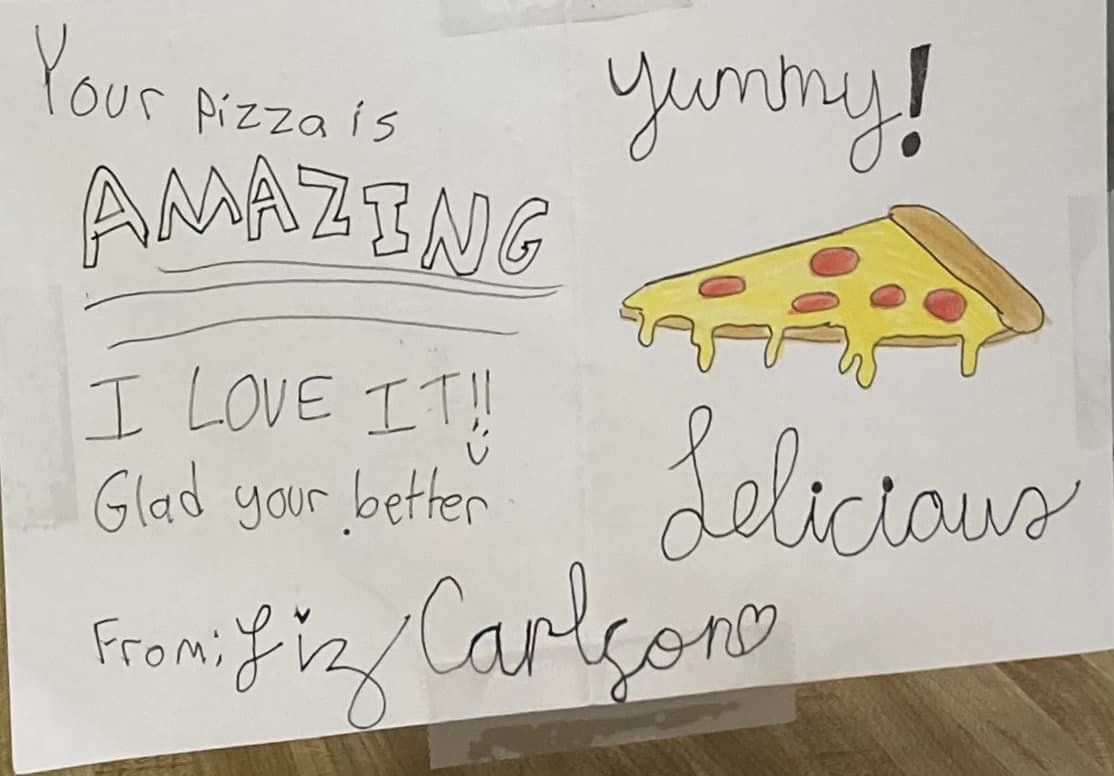 Your pizza is
AMAZING
I LOVE IT!!
Glad your better
From: Liz Carlson
yummy!
Delicious